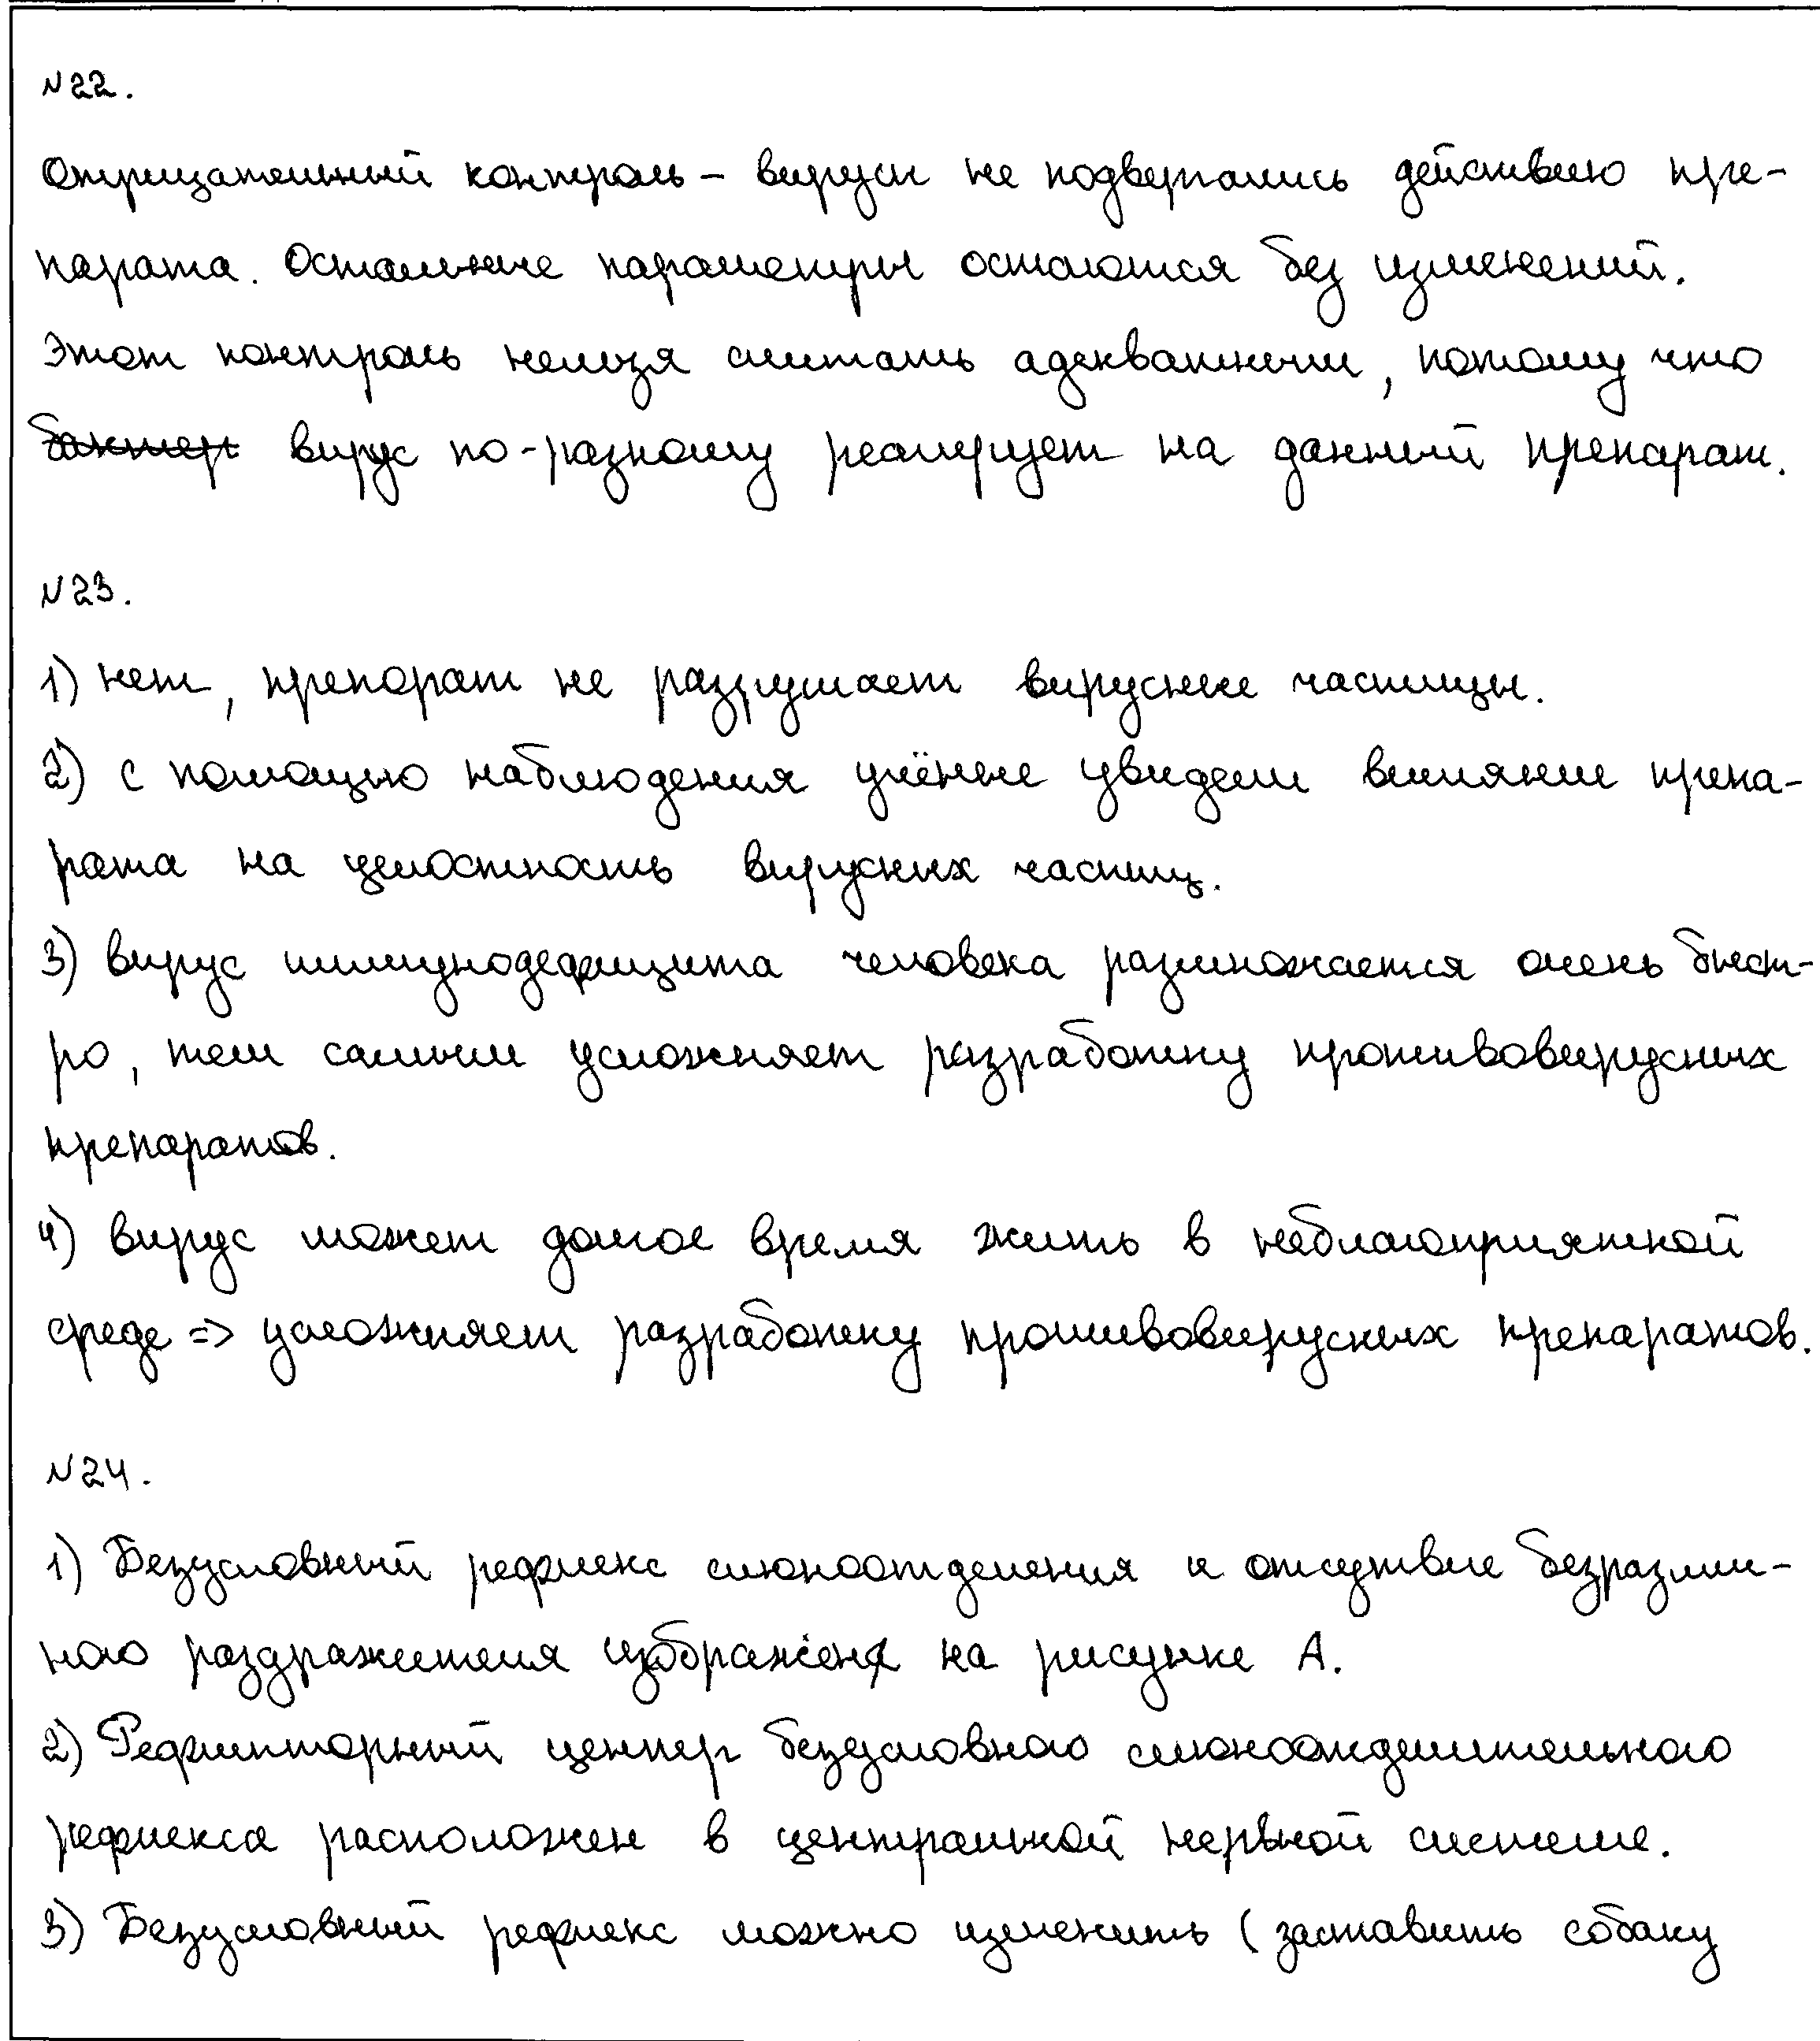 N22.
Отрицательный контроль – вирусы не подвергались действию пре-
парата. Остальные параметры остаются без изменений.
Этот контроль нельзя считать адекватным, потому что
бактер вирус по-разному реагирует на данный препарат.
N23.
1) нет, препарат не разрушает вирусные частицы.
2) с помощью наблюдения учёные увидели влияние препа-
рата на целостность вирусных частиц.
3) вирус иммунодефицита человека размножается очень быст-
ро, тем самым усложняет разработку противовирусных
препаратов.
4) вирус может долгое время жить в неблагоприятной
среде => усложняет разработку противовирусных препаратов.
N24.
1) Безусловный рефлекс слюноотделения и отсутвие безразлич-
ного раздражителя изображены на рисунке А.
2) Рефлекторный центр безусловного слюноотделительного
рефлекса расположен в центральной нервной системе.
3) Безусловный рефлекс можно изменить (заставить собаку